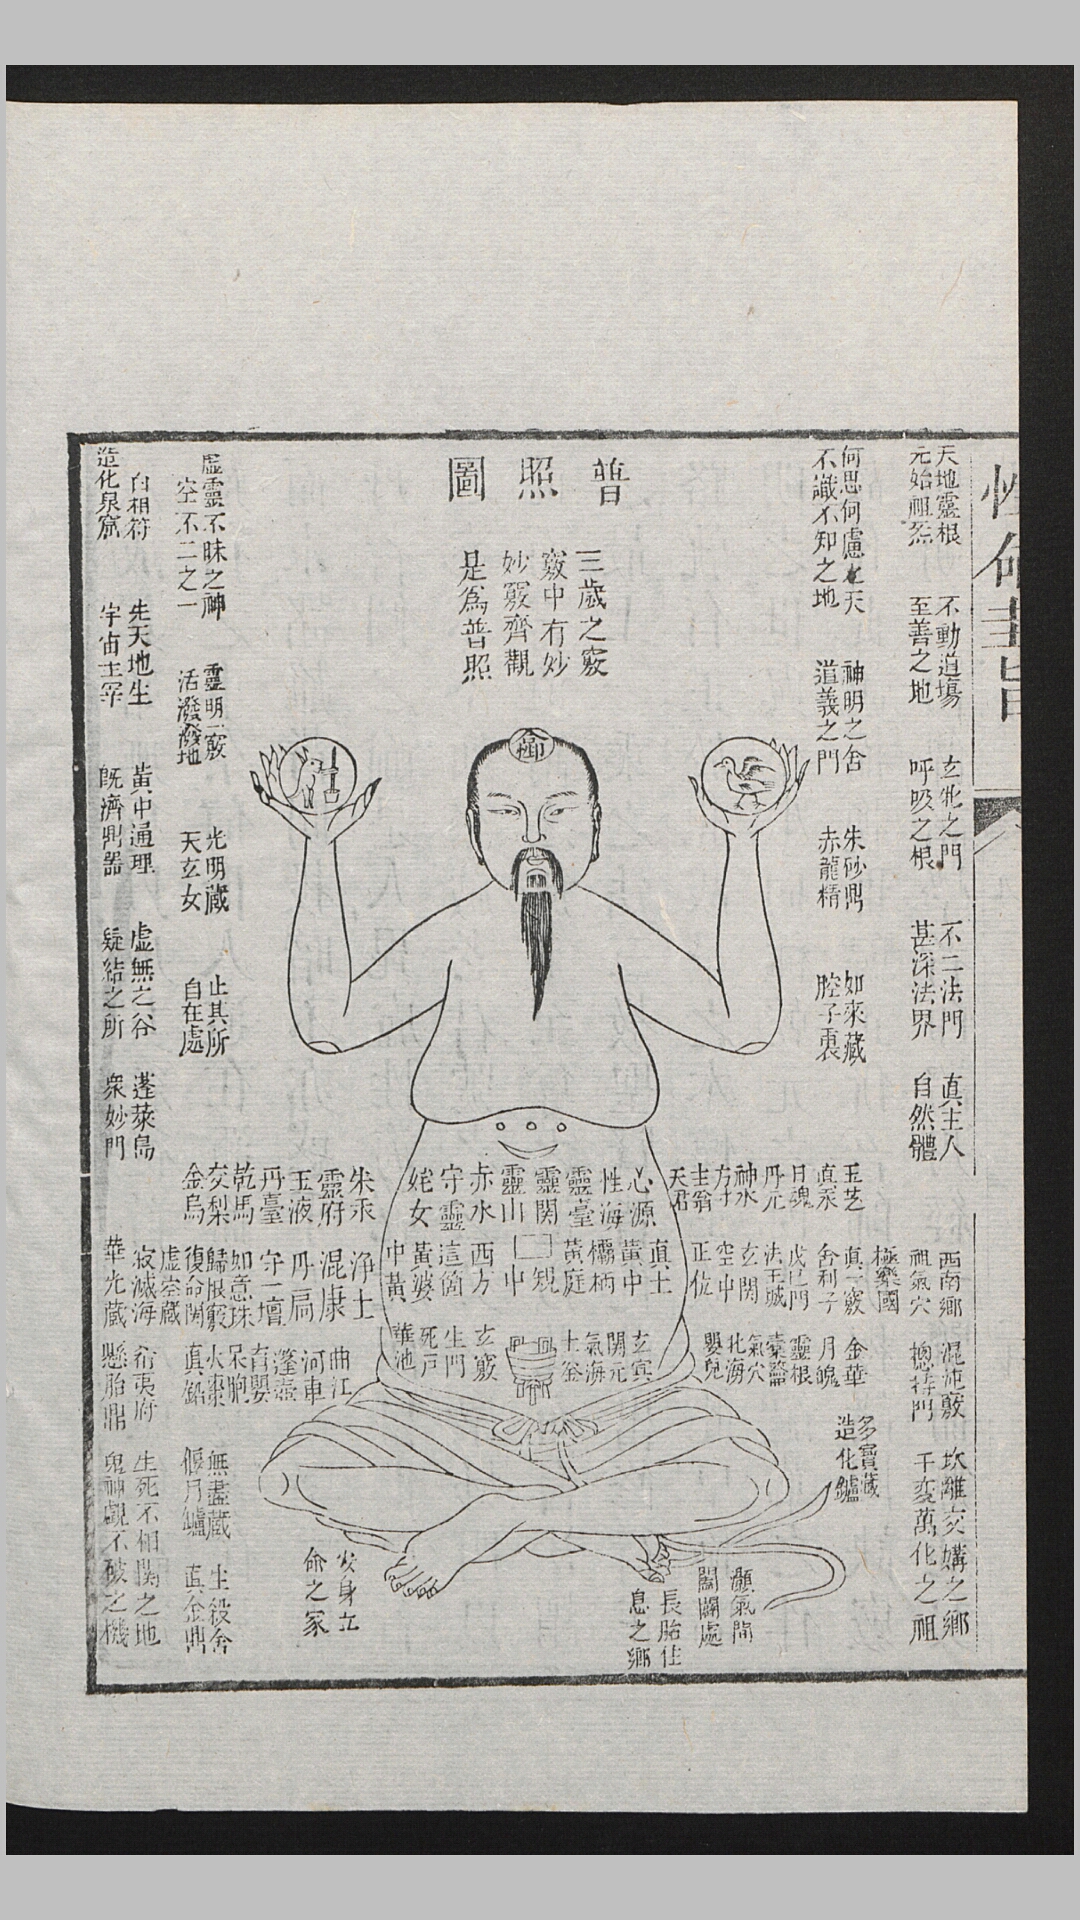 普照圖
三歲之竅
竅中有妙
妙竅齊觀
是為普照
天地靈根
元始祖炁
不動道場
至善之地
玄牝之門
呼吸之根
不二法門
甚深法界
真主人
自然體
西南鄉
祖氣穴
混沌竅
總持門
坎離交媾之鄉
千變萬化之祖
何思何慮之天
不識不知之地
神明之舍
道義之門
朱砂鼎
赤龍精
如來藏
腔子裏
玉芝
真汞
日魂
丹元
神水
方寸
主翁
天君
心源
性海
靈臺
靈関
靈山
赤水
守靈
姹女
朱汞
靈府
玉液
丹臺
乾馬
交梨
金烏
極樂國
真一竅
舍利子
戊己門
法王城
玄関
空中
正位
真土
黃中
欛柄
黃庭
規
中
西方
這箇
黃婆
中黃
浄土
混康
丹扃
守一壇
如意珠
歸根竅
復命関
虛空藏
金華
月魄
靈根
橐籥
氣穴
北海
嬰兒
玄宾
関元
氣海
土釜
玄竅
生門
死戸
華池
曲江
河車
蓬壺
育嬰
呆胞
火棗
真鉛
多寶藏
造化鑪
顥氣間
闔闢處
長胎住
息之鄉
安身立
命之家
虛靈不昧之神
空不二之一
靈明一竅
活潑潑地
光明藏
天玄女
止其所
自在處
無盡藏
偃月鑪
生殺舍
真金鼎
自相符
造化泉窟
先天地生
宇宙主宰
黃中通理
既濟鼎器
虛無之谷
凝結之所
蓬萊島
衆妙門
寂滅海
華光藏
希夷府
懸胎鼎
生死不相関之地
鬼神覷不破之機